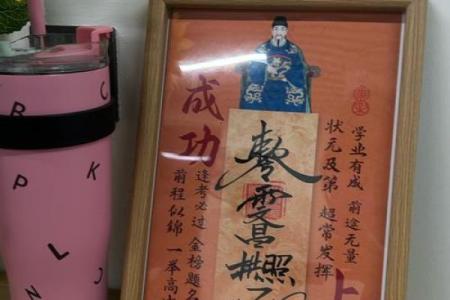 学业有成 前途无量
状元及第 超常发挥
上
昌
照
成功
逢考必过 金榜题名
前程似锦 一举高
C
P
K
L